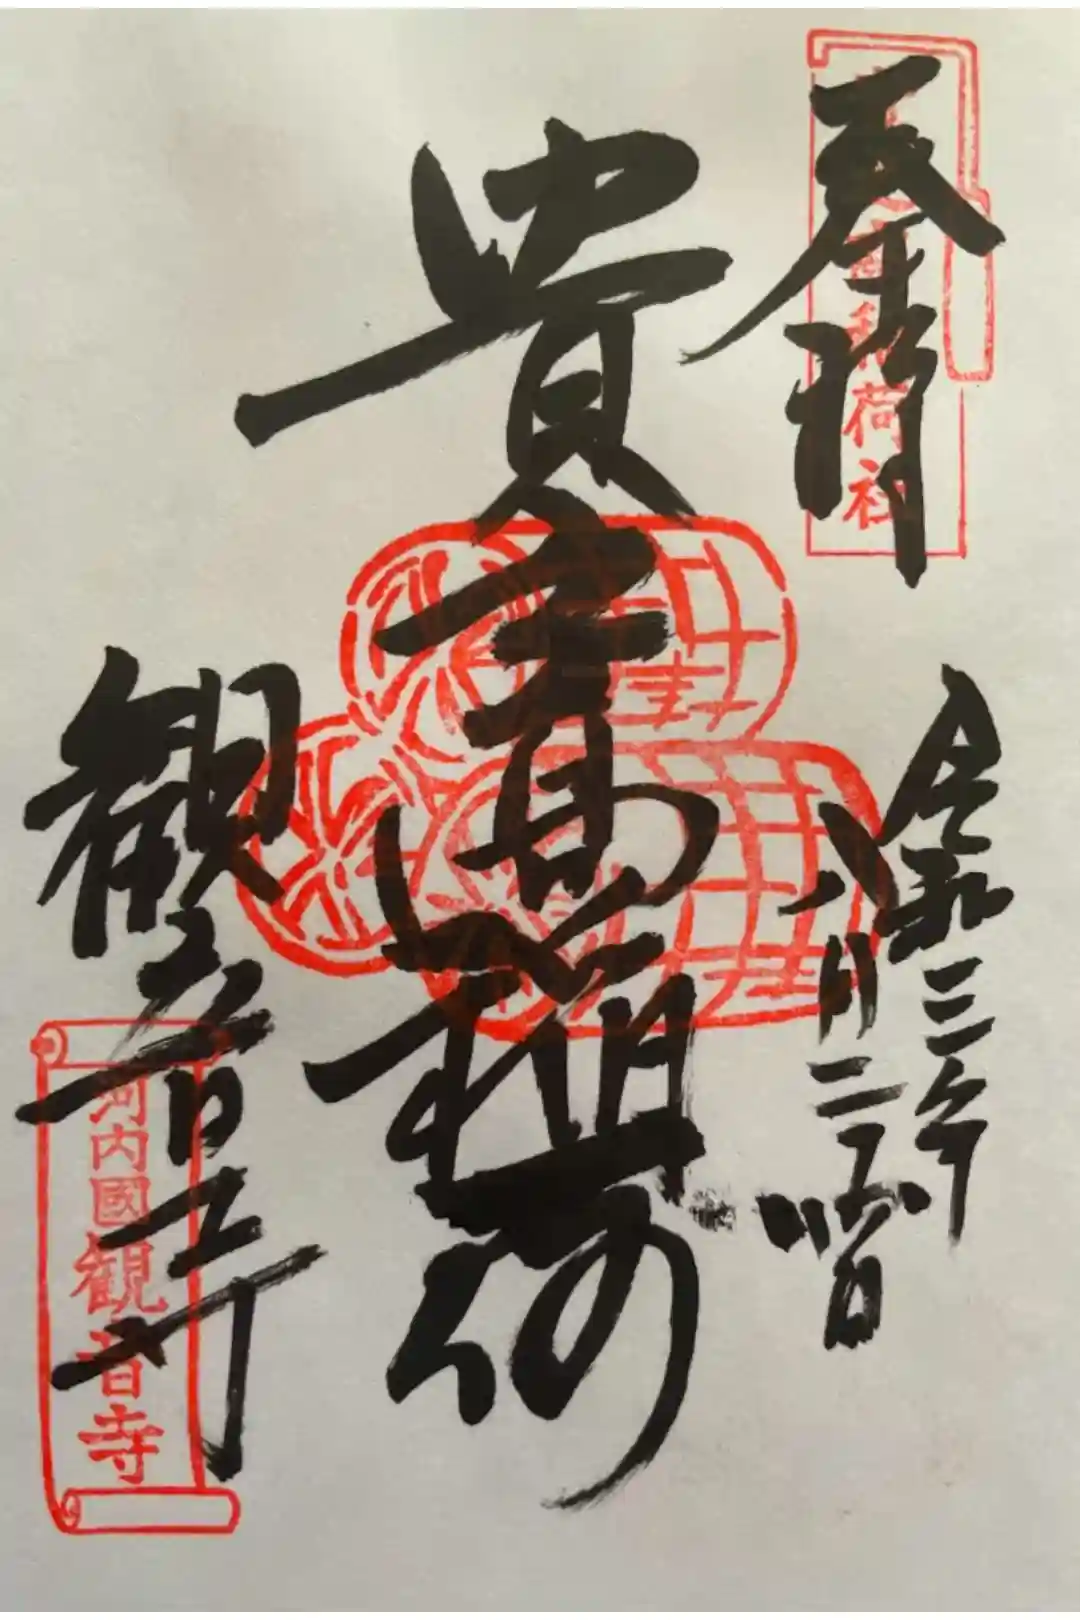 奉拝
稲荷社
令和三年
八月二十五日
貴高稲荷
観音寺
河内國観音寺